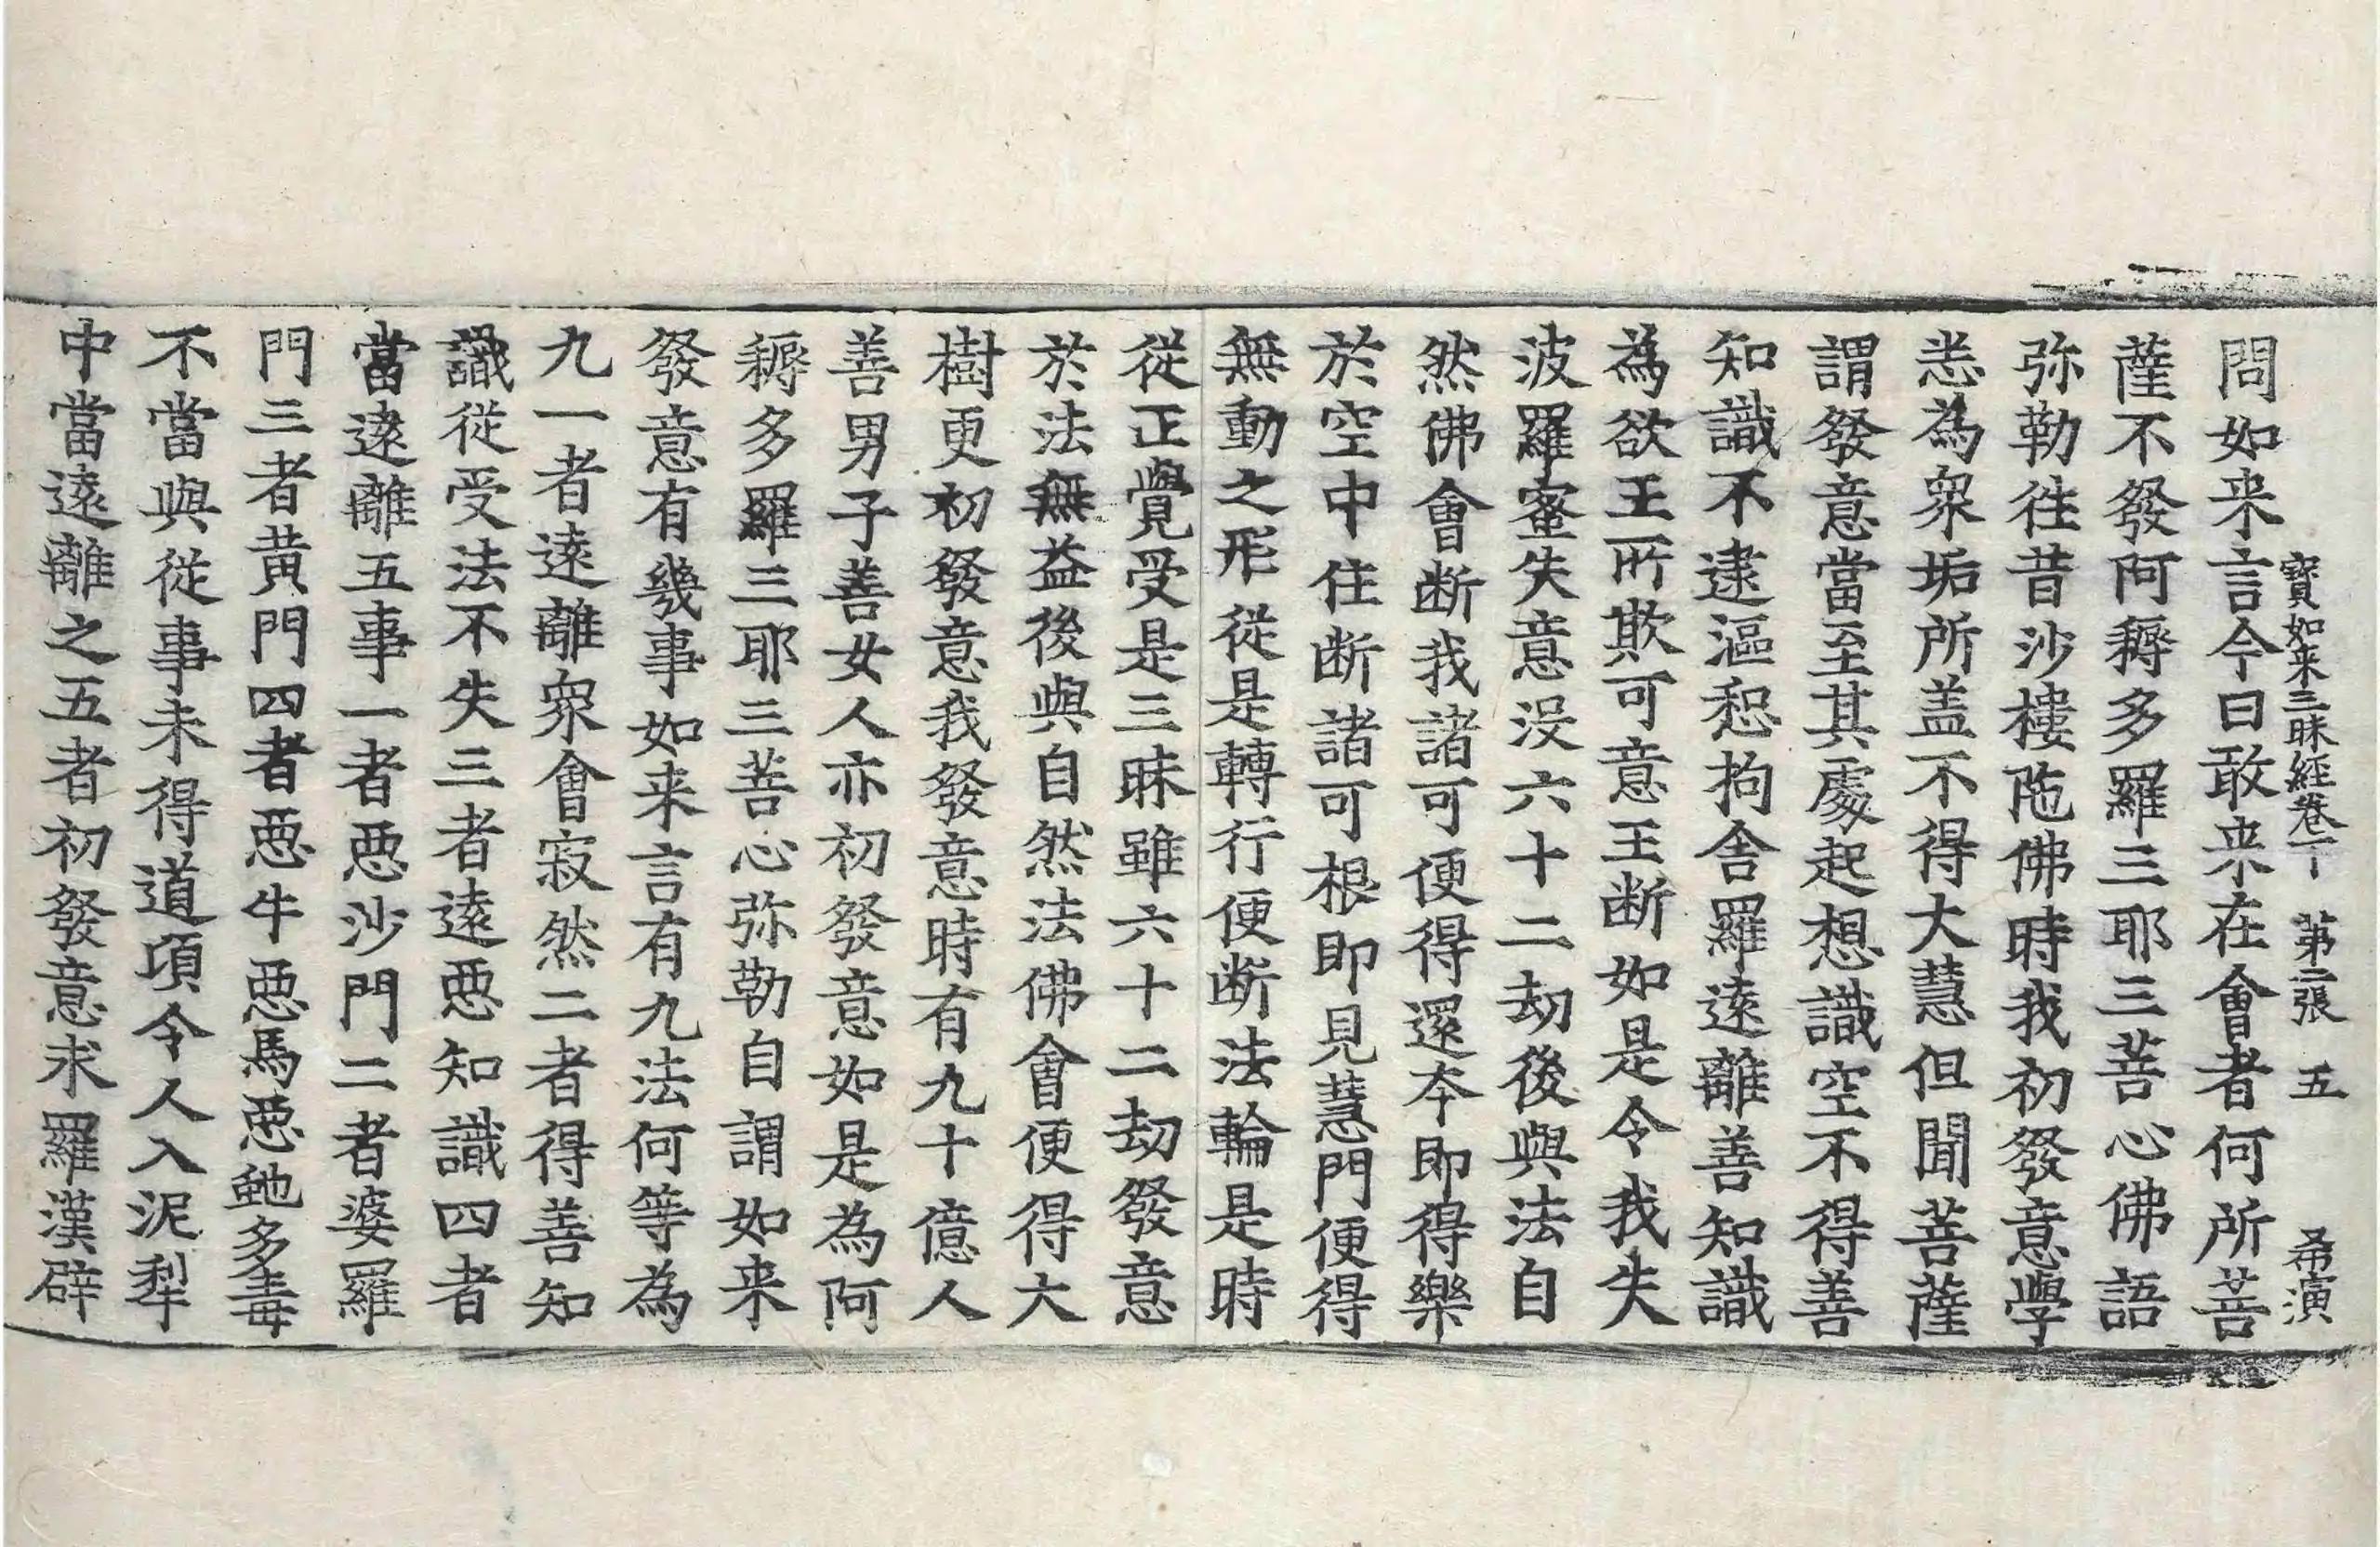 寶如来三昧經卷下　第二張　五　希演
問如来言今日敢来在會者何所菩
薩不發阿耨多羅三耶三菩心佛語
弥勒徃昔沙樓陁佛時我初發意學
恙為衆垢所盖不得大慧但聞菩薩
謂發意當至其處起想識空不得善
知識不逮漚惒拘舍羅遠離善知識
為欲王所欺可意王断如是令我失
波羅蜜失意没六十二劫後與法自
然佛會断我諸可便得還本即得樂
於空中住断諸可根即見慧門便得
無動之形從是轉行便断法輪是時
從正覺受是三昧雖六十二劫發意
於法無益後與自然法佛會便得大
樹更初發意我發意時有九十億人
善男子善女人亦初發意如是為阿
耨多羅三耶三菩心弥勒自謂如来
發意有幾事如来言有九法何等為
九一者遠離衆會寂然二者得善知
識從受法不失三者遠惡知識四者
當遠離五事一者惡沙門二者婆羅
門三者黄門四者惡牛惡馬惡虵多毒
不當與從事未得道項令人入泥犁
中當遠離之五者初發意求羅漢辟